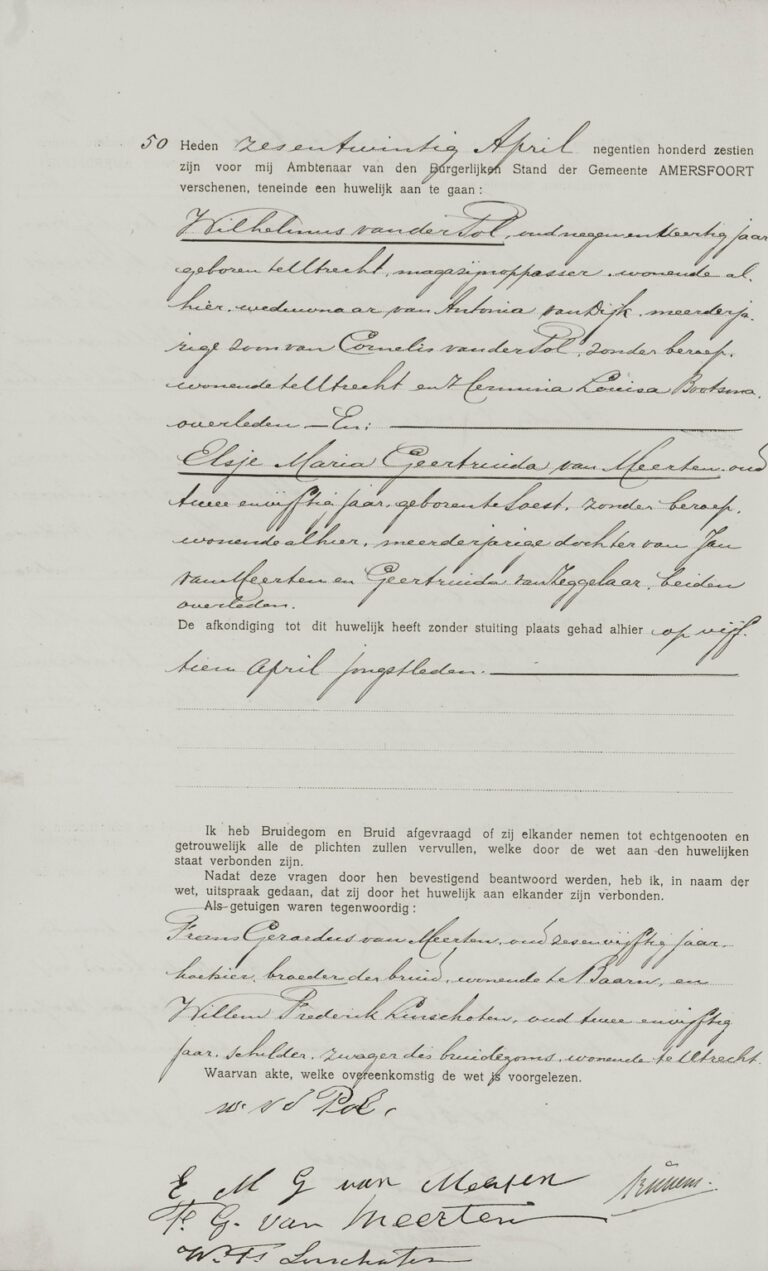 50 Heden zesentwintig April negentien honderd zestien
zijn voor mij Ambtenaar van den Burgerlijken Stand der Gemeente AMERSFOORT
verschenen, teneinde een huwelijk aan te gaan:
Wilhelmus van der Pol, oud negenenveertig jaar
geboren te Utrecht, magazijnoppasser, wonende al,
hier, weduwnaar van Antonia van Dijk, meerderja,
rige zoon van Cornelis van der Pol, zonder beroep,
wonende te Utrecht en Hermina Louisa Bootsma,
overleden – En:
Elsje Maria Geertruida van Meerten, oud
twee envijftig jaar, geboren te Soest, zonder beroep,
wonende alhier, meerderjarige dochter van Jan
van Meerten en Geertruida van Zeggelaar, beiden
overleden.
De afkondiging tot dit huwelijk heeft zonder stuiting plaats gehad alhier op vijf,
tien April jongstleden.
Ik heb Bruidegom en Bruid afgevraagd of zij elkander nemen tot echtgenooten en
getrouwelijk alle de plichten zullen vervullen, welke door de wet aan den huwelijken
staat verbonden zijn.
Nadat deze vragen door hen bevestigend beantwoord werden, heb ik, in naam der
wet, uitspraak gedaan, dat zij door het huwelijk aan elkander zijn verbonden.
Als getuigen waren tegenwoordig:
Frans Gerardus van Meerten, oud zesenvijftig jaar,
hotelier, broeder der bruid, wonende te Baarn, en
Willem Frederik Linschoten, oud twee envijftig
jaar, schilder, zwager des bruidegoms, wonende te Utrecht.
Waarvan akte, welke overeenkomstig de wet is voorgelezen.
W. v d Pol.
E M G van Meerten
F. G. van Meerten
W. F. Linschoten